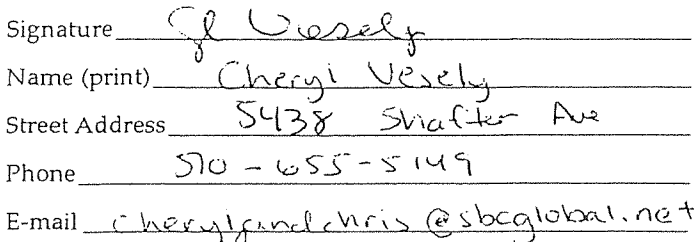 Signature Cl Vesely
Name (print) Cheryl Vesely
Street Address 5438 Shafter Ave
Phone 510-655-5149
E-mail cherylandchris@sbcglobal.net